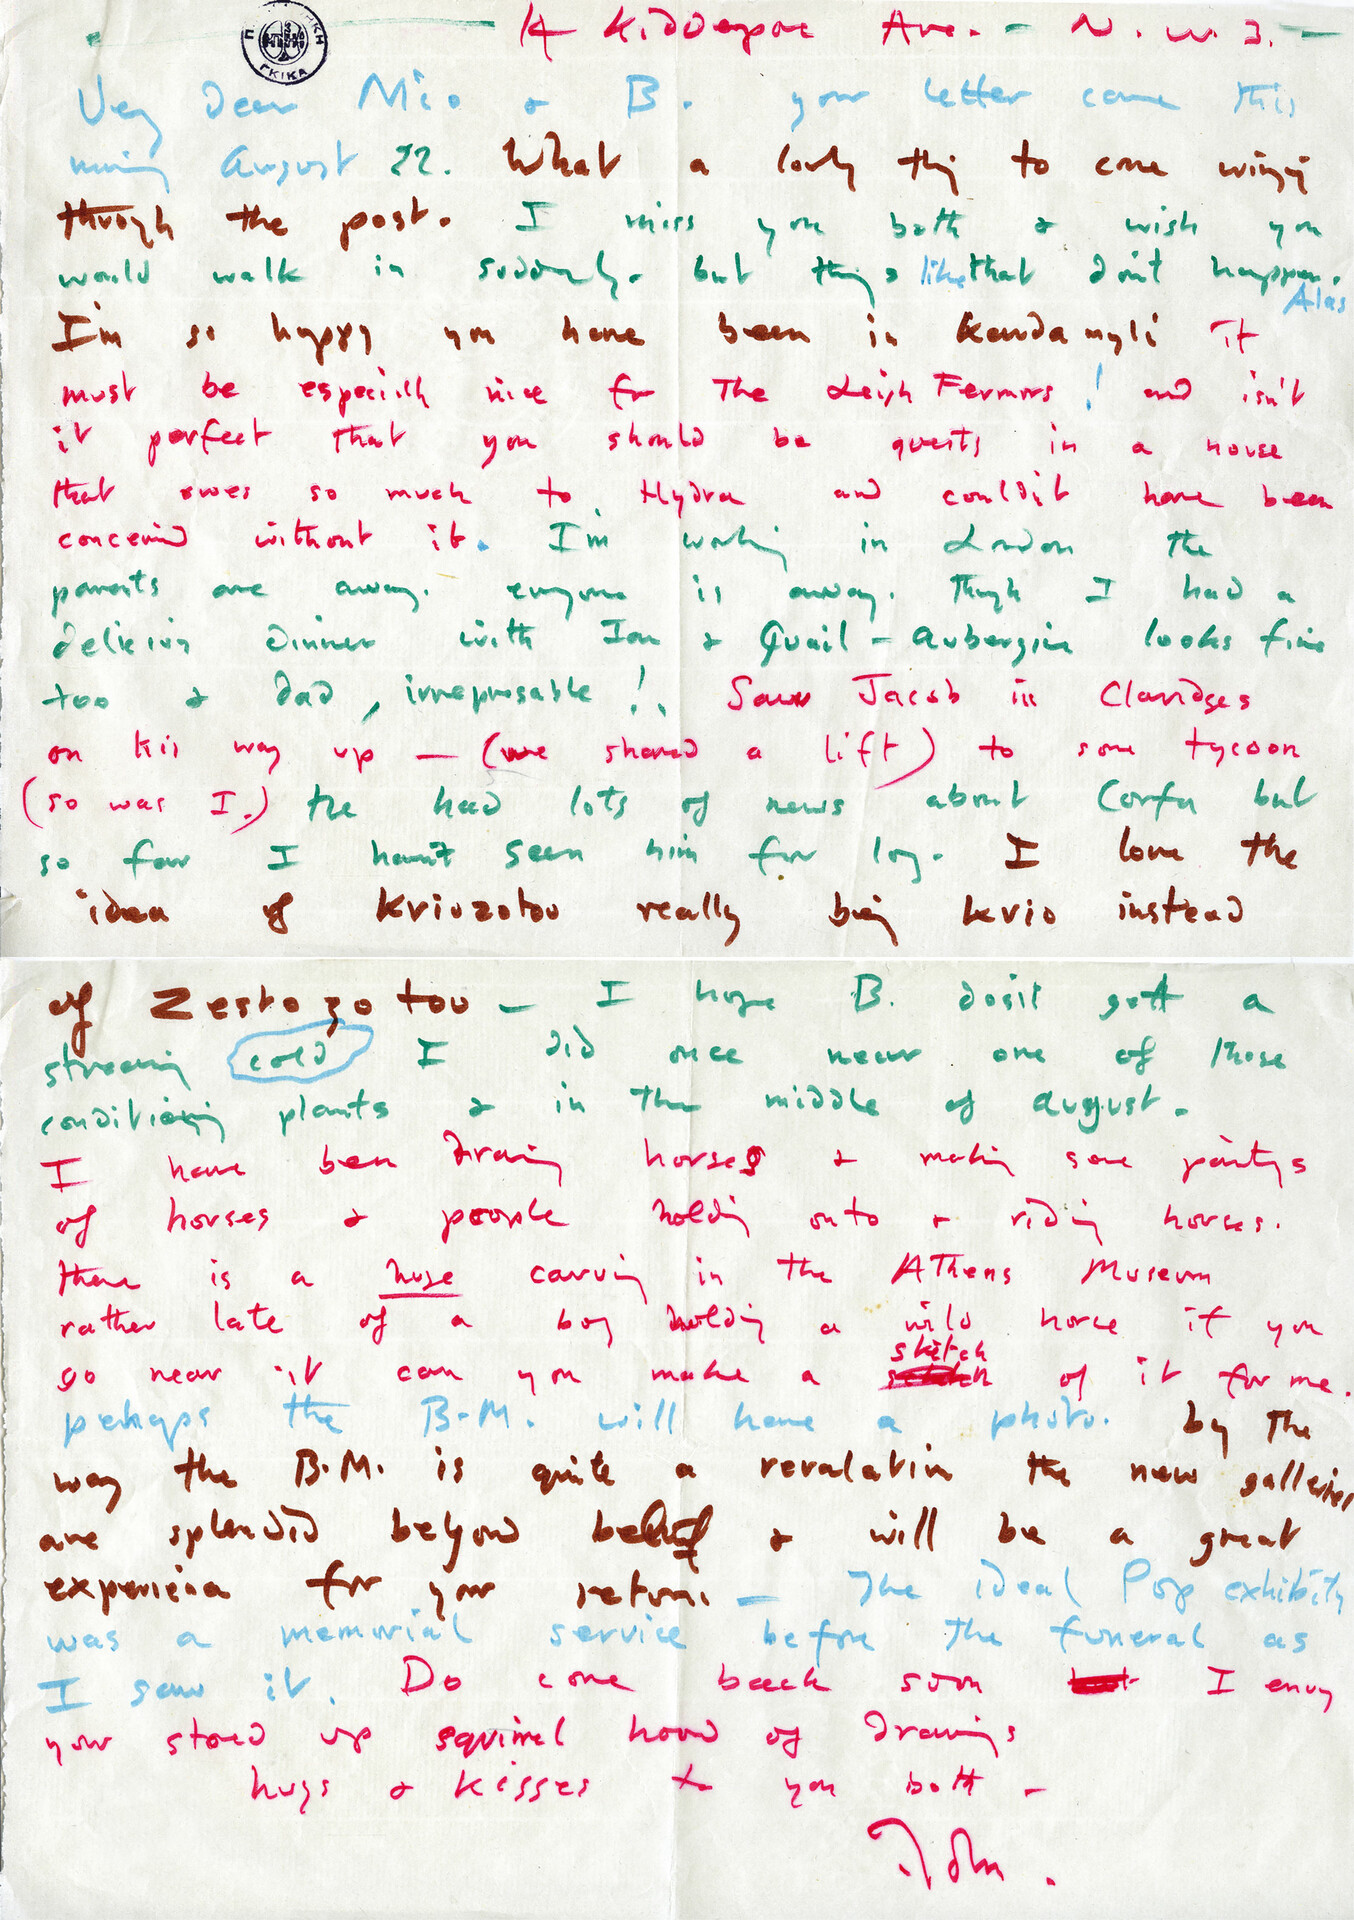 14 Kidderpore Ave. - N.W.3. -
ΓΚΙΚΑ
Very dear Nico & B. your letter came this
morning August 22. What a lovely thing to come winging
through the post. I miss you both & wish you
would walk in suddenly. but things like that don't happen.
Alas
I'm so happy you have been in Kardamyli it
must be especially nice for The Leigh Fermors! and isn't
it perfect that you should be guests in a house
that owes so much to Hydra and couldn't have been
conceived without it. I'm working in London the
parents are away. everyone is away. Though I had a
delicious dinner with Ian & Quail - Aubergine looks fine
too & dad, irrepressable!. Saw Jacob in Claridges
on his way up — (we shared a lift) to some tycoon
(so was I.) He had lots of news about Corfu but
so far I havn't seen him for long. I love the
idea of Kriozotou really being Krio instead
of Zestozotou — I hope B. dosn't gett a
streaming cold I did once near one of those
conditioning plants & in the middle of august.
I have been drawing horses & making some paintings
of horses & people holding onto & riding horses.
there is a huge carving in the Athens Museum
rather late of a boy holding a wild horse if you
go near it can you make a sketch of it for me.
perhaps the B.M. will have a photo. by The
way the B.M. is quite a revalation the new galleries
are splendid beyond belief & will be a great
experience for your return. — The ideal Pop exhibition
was a memorial service before the funeral as
I saw it. Do come back soon I envy
your stored up squirrel hoard of drawings
hugs & kisses to you both -
John.